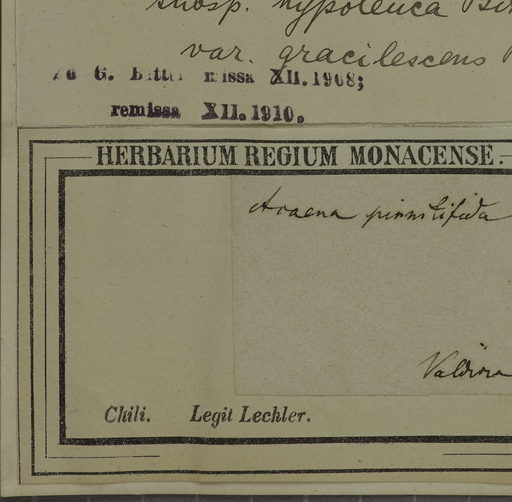 subsp. hypoleuca
var. gracilescens
Ad G. Bitter missa XII.1908;
remissa XII.1910.
HERBARIUM REGIUM MONACENSE.
Acaena pinnatifida
Valdivia
Chili. Legit Lechler.